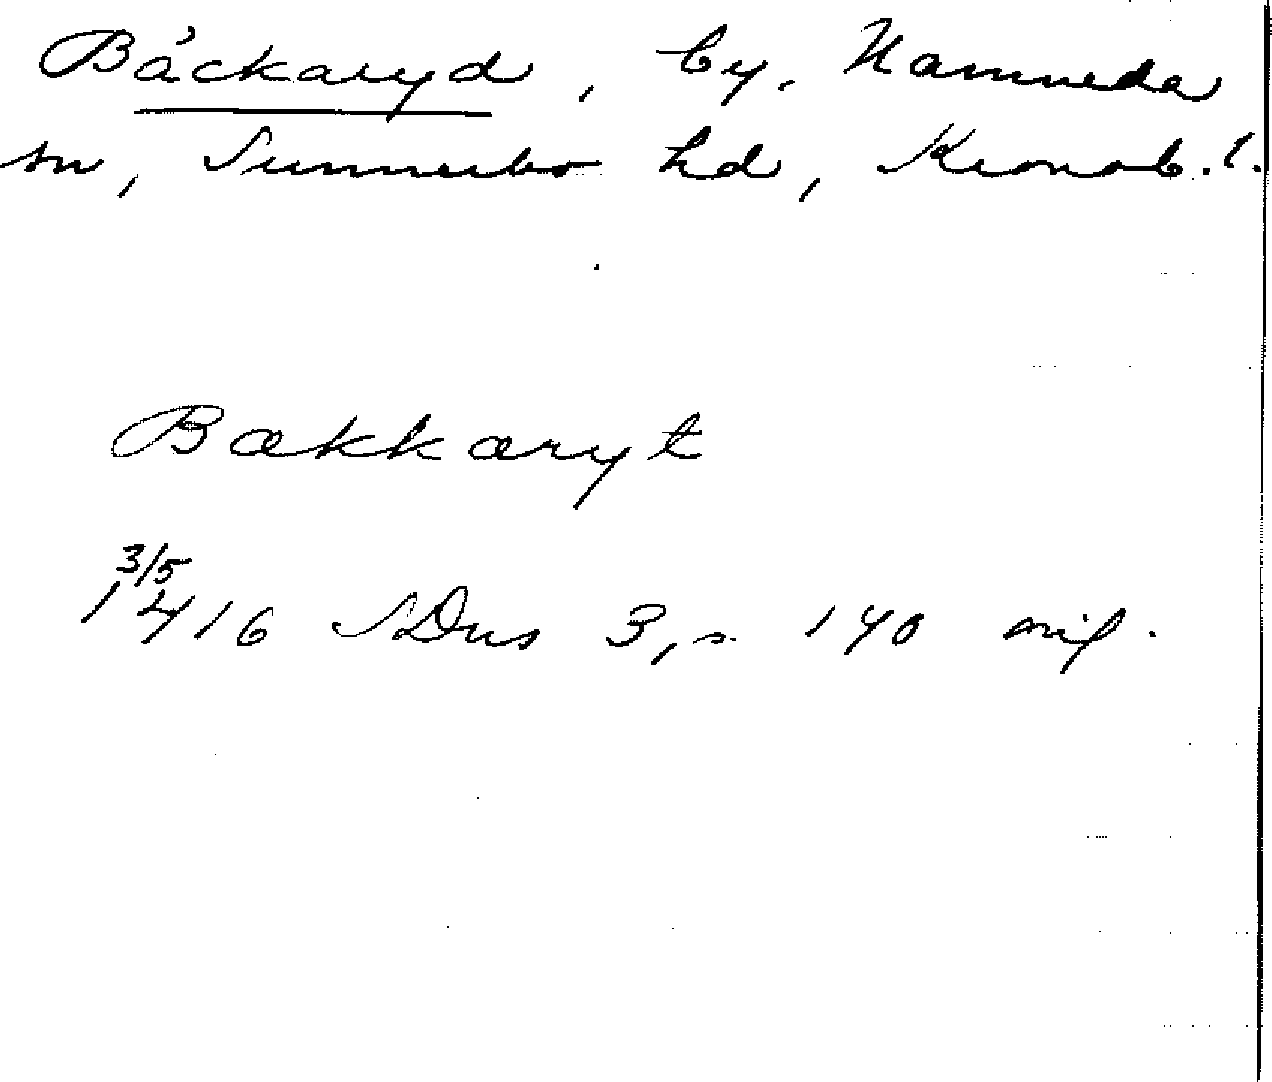 Bäckaryd, by, Hamneda
sn, Sunnerbo hd, Kronob. l.
Bækkæryt
3/5
1416 SDns 3, s. 140 orig.